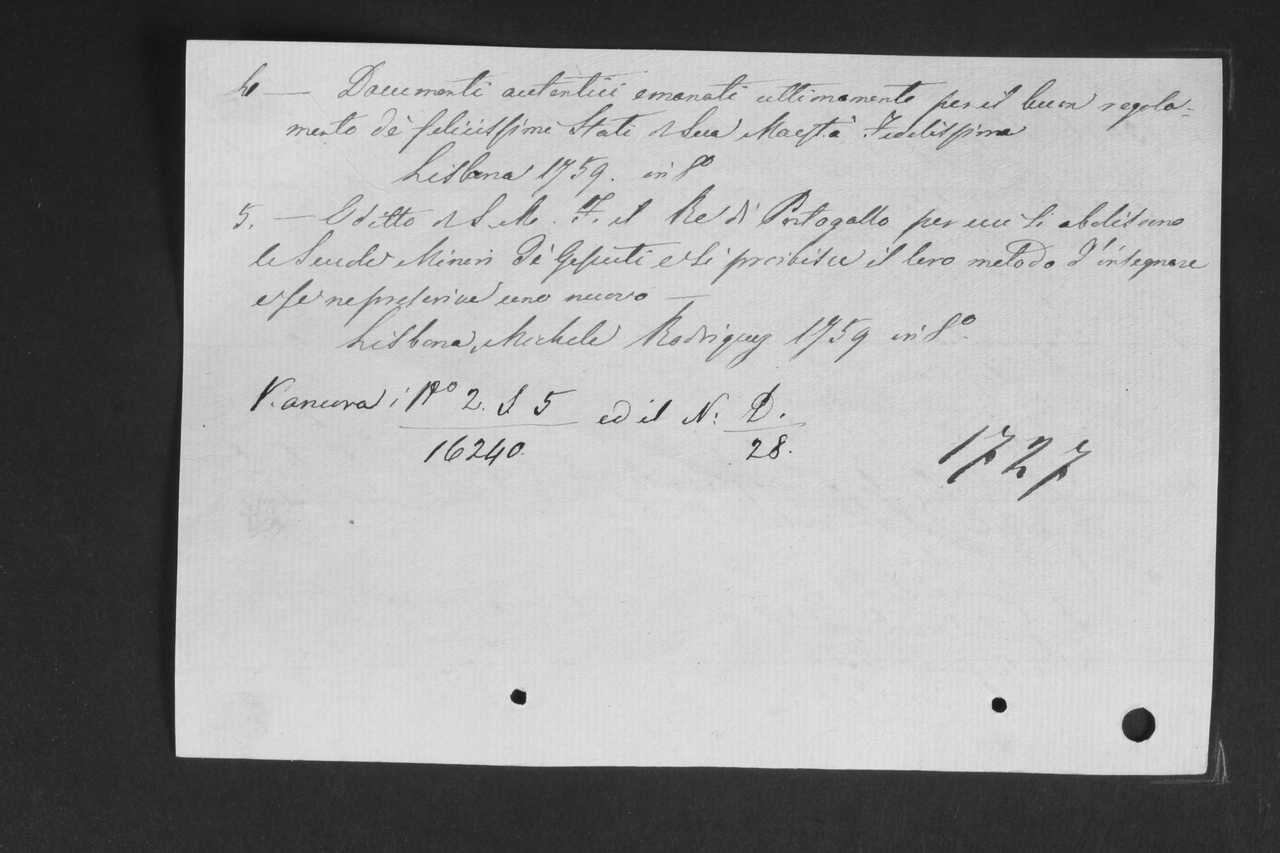 4 — Documenti autentici emanati ultimamente per il buon regola-
mento de' felicissimi Stati di Sua Maestà Fedelissima
Lisbona 1759. in 8º
5. — Editto di S. M. F. il Re di Portogallo per cui si aboliscono
le Scuole Minori de' Gesuiti e si proibisce il loro metodo d'insegnare
e se ne prescrive uno nuovo —
Lisbona, Michele Rodriguez 1759 in 8º.
V. ancora i Nº 2. S 5 ed il N: D.
16240. 28.
1727